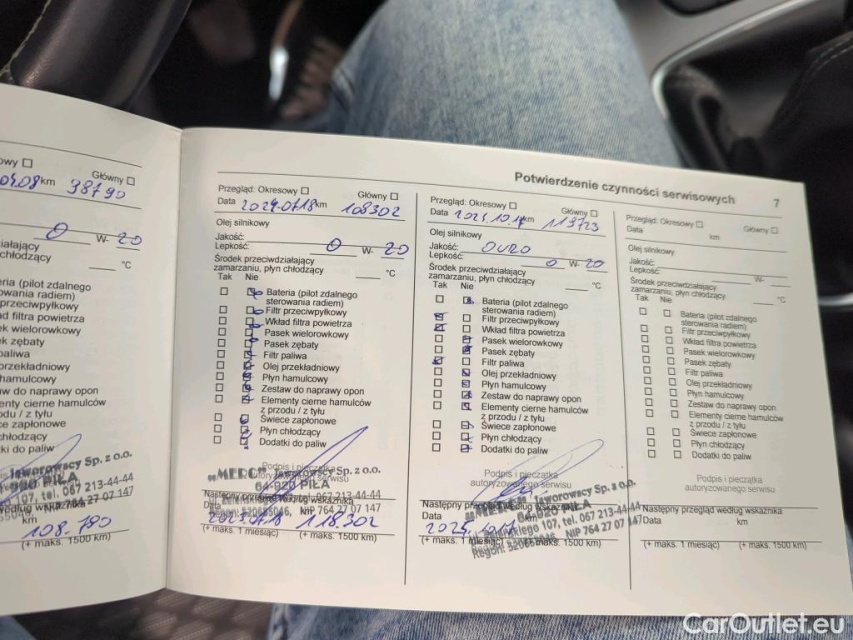 Potwierdzenie czynności serwisowych 7
Główny
km 38790
W- 20
°C
hamulcowy
64-920 PIŁA
107, tel. 067 213-44-44
NIP 764 27 07 147
km
108.780
(+ maks. 1500 km)
Przegląd: Okresowy Główny
Data km 108302
Olej silnikowy
Jakość:
Lepkość: 0 W- 20
Środek przeciwdziałający
zamarzaniu, płyn chłodzący °C
Tak Nie
Bateria (pilot zdalnego
sterowania radiem)
Filtr przeciwpyłkowy
Wkład filtra powietrza
Pasek wielorowkowy
Pasek zębaty
Filtr paliwa
Olej przekładniowy
Płyn hamulcowy
Zestaw do naprawy opon
Elementy cierne hamulców
z przodu / z tyłu
Świece zapłonowe
Płyn chłodzący
Dodatki do paliw
Podpis i pieczątka
"MERC" Jaworowscy Sp. z o.o.
64-920 PIŁA
NIP 764 27 07 147
Data 118.302
(+ maks. 1 miesiąc) (+ maks. 1500 km)
Przegląd: Okresowy Główny
Data km 113723
Olej silnikowy
Jakość:
Lepkość: 0 W- 20
Środek przeciwdziałający
zamarzaniu, płyn chłodzący °C
Tak Nie
Bateria (pilot zdalnego
sterowania radiem)
Filtr przeciwpyłkowy
Wkład filtra powietrza
Pasek wielorowkowy
Pasek zębaty
Filtr paliwa
Olej przekładniowy
Płyn hamulcowy
Zestaw do naprawy opon
Elementy cierne hamulców
z przodu / z tyłu
Świece zapłonowe
Płyn chłodzący
Dodatki do paliw
Podpis i pieczątka
autoryzowanego serwisu
Jaworowscy Sp. z o.o.
64-920 PIŁA
107, tel. 067 213-44-44
NIP 764 27 07 147
Następny przegląd według wskaźnika
Data
(+ maks. 1 miesiąc) (+ maks. 1500 km)
Przegląd: Okresowy Główny
Data km
Olej silnikowy
Jakość:
Lepkość: W-
Środek przeciwdziałający
zamarzaniu, płyn chłodzący °C
Tak Nie
Bateria (pilot zdalnego
sterowania radiem)
Filtr przeciwpyłkowy
Wkład filtra powietrza
Pasek wielorowkowy
Pasek zębaty
Filtr paliwa
Olej przekładniowy
Płyn hamulcowy
Zestaw do naprawy opon
Elementy cierne hamulców
z przodu / z tyłu
Świece zapłonowe
Płyn chłodzący
Dodatki do paliw
Podpis i pieczątka
autoryzowanego serwisu
Następny przegląd według wskaźnika
Data km
(+ maks. 1 miesiąc) (+ maks. 1500 km)
CarOutlet.eu